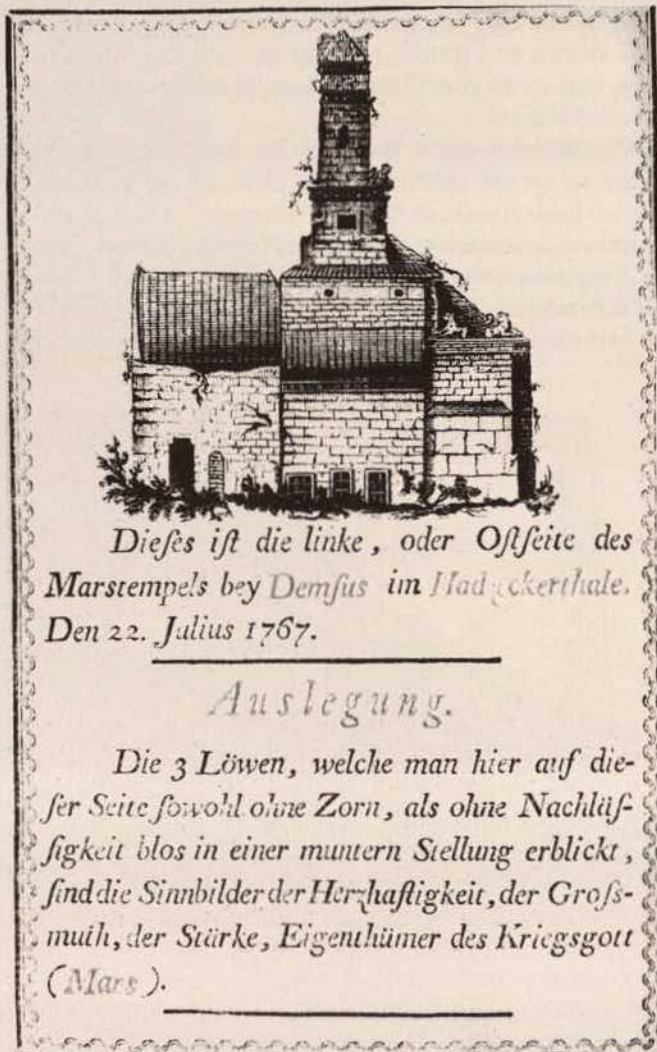 Dieſes iſt die linke, oder Oſtſeite des
Marstempels bey Demſus im Hadzekerthale.
Den 22. Julius 1767.
Auslegung.
Die 3 Löwen, welche man hier auf die-
ſer Seite ſowohl ohne Zorn, als ohne Nachläſ-
ſigkeit blos in einer muntern Stellung erblickt,
ſind die Sinnbilder der Herzhaftigkeit, der Groſs-
muth, der Stärke, Eigenthümer des Kriegsgott
(Mars).